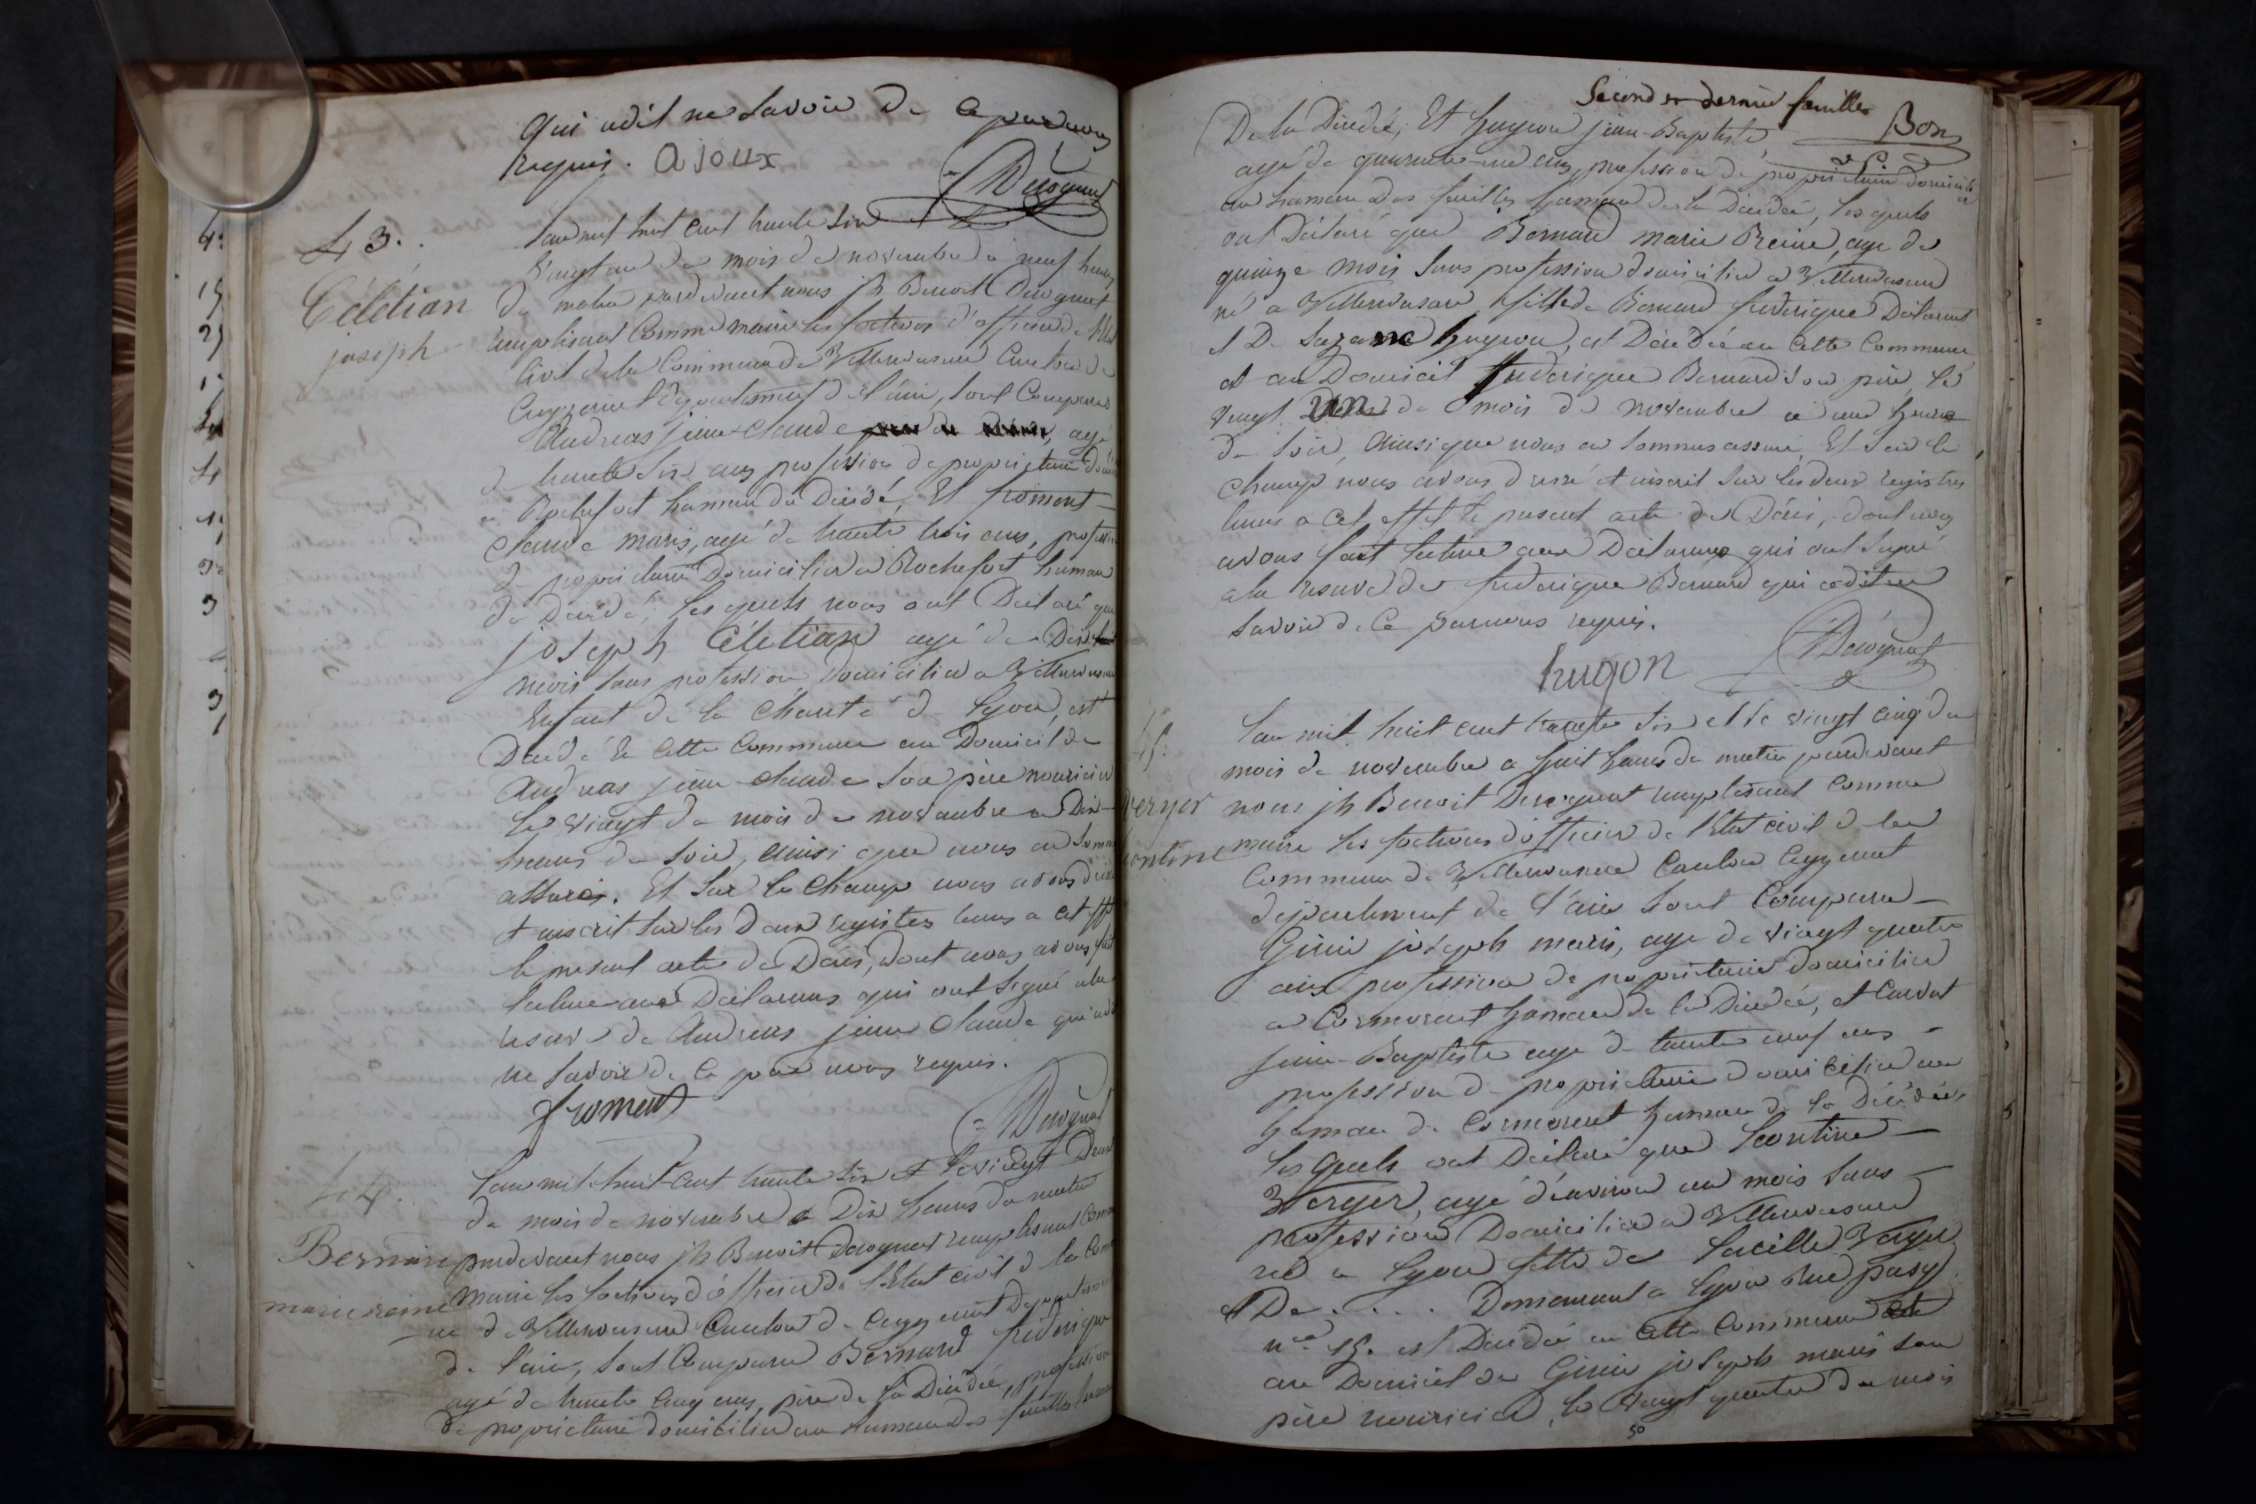 qui a dit ne savoir de ce par nous
requis. ajoux
Decognat
43.
Célétian
joseph
L'an mil huit cent trente six
vingt un du mois de novembre à neuf heures
du matin pardevant nous jh Benoit Decognat
remplissant comme maire les fonctions d'officier de l'état
civil de la commune de Villereversure canton de
Ceyzeriat département de l'ain, sont comparus
Andreas jean-claude agé
de trente six ans profession de propriétaire
a Rochefort hameau du Décédé, Et froment
claude marie, agé de trente trois ans, profession
de propriétaire Domicilié a Rochefort hameau
du Décédé, les quels nous ont Déclaré que
joseph Célétian agé de Dix
mois sans profession domicilié a Villereversure
Enfant de la charité de Lyon, est
Décédé en cette commune au Domicile de
Andreas jean-claude son père nouricier
le vingt du mois de novembre a Dix
heures du soir, ainsi que nous en sommes
assurés. Et sur le champ nous avons
et inscrit sur les deux registres tenus a cet effet
le présent acte de Décès, dont nous avons fait
lecture aux Déclarans qui ont signé a la
reserve de Andreas jean claude qui a dit
ne savoir de ce par nous requis.
froment
Decognat
44.
Bernard
marie reine
L'an mil huit cent trente six et le vingt Deux
du mois de novembre a Dix heures du matin
pardevant nous jh Benoit Decognat remplissant comme
maire les fonctions d'officier de l'état civil de la commu
ne de Villereversure Canton de Ceyzeriat Département
de l'ain, sont comparu Bernard fréderique
agé de trente cinq ans, père de la Décédée, profession
de propriétaire domicilié au hameau des feuilles
Second et dernier feuillet
Bon
De la Décédée, Et hugon jean-Baptiste
agé de quarante ans, profession de propriétaire domicilié
au hameau des feuilles hameau de la Décédée, les quels
ont Déclaré que Bernard marie Reine, agé de
quinze mois sans profession domicilié a Villereversure
né a Villereversure fille de Bernard fréderique Déclarant
et De Suzanne hugon, est Décédée en cette commune
et au Domicile fréderique Bernard son père le
vingt un du mois de novembre a une heure
du soir, ainsi que nous en sommes assuré, Et sur le
champ nous avons dressé et inscrit sur les deux registres
tenus a cet effet le present acte de Décès, dont nous
avons fait lecture aux Déclarans qui ont signé
a la reserve de fréderique Bernard qui a dit ne
savoir de ce par nous requis.
hugon
Decognat
45.
Verger
L'an mil huit cent trente six et le vingt cinq du
mois de novembre a huit heures du matin pardevant
nous jh Benoit Decognat remplissant comme
maire les fonctions d'officier de l'état civil de la
commune de Villereversure Canton Ceyzeriat
département de l'ain sont comparu
joseph marie, agé de vingt quatre
ans profession de propriétaire domicilié
a Cormorant hameau de la Décédée, et
jean-Baptiste agé de trente neuf ans
profession de propriétaire domicilié au
hameau de Cormorant hameau de la Décédée
les quels ont Déclaré que Léontine
Verger, agé d'environ un mois sans
profession Domicilié a Villereversure
né a Lyon fille de Lucille Verger
et De .... Demeurant a Lyon Rue
n° 15. est Décédée en cette commune
au Domicile de joseph marie son
père nouricier, le vingt quatre du mois
50